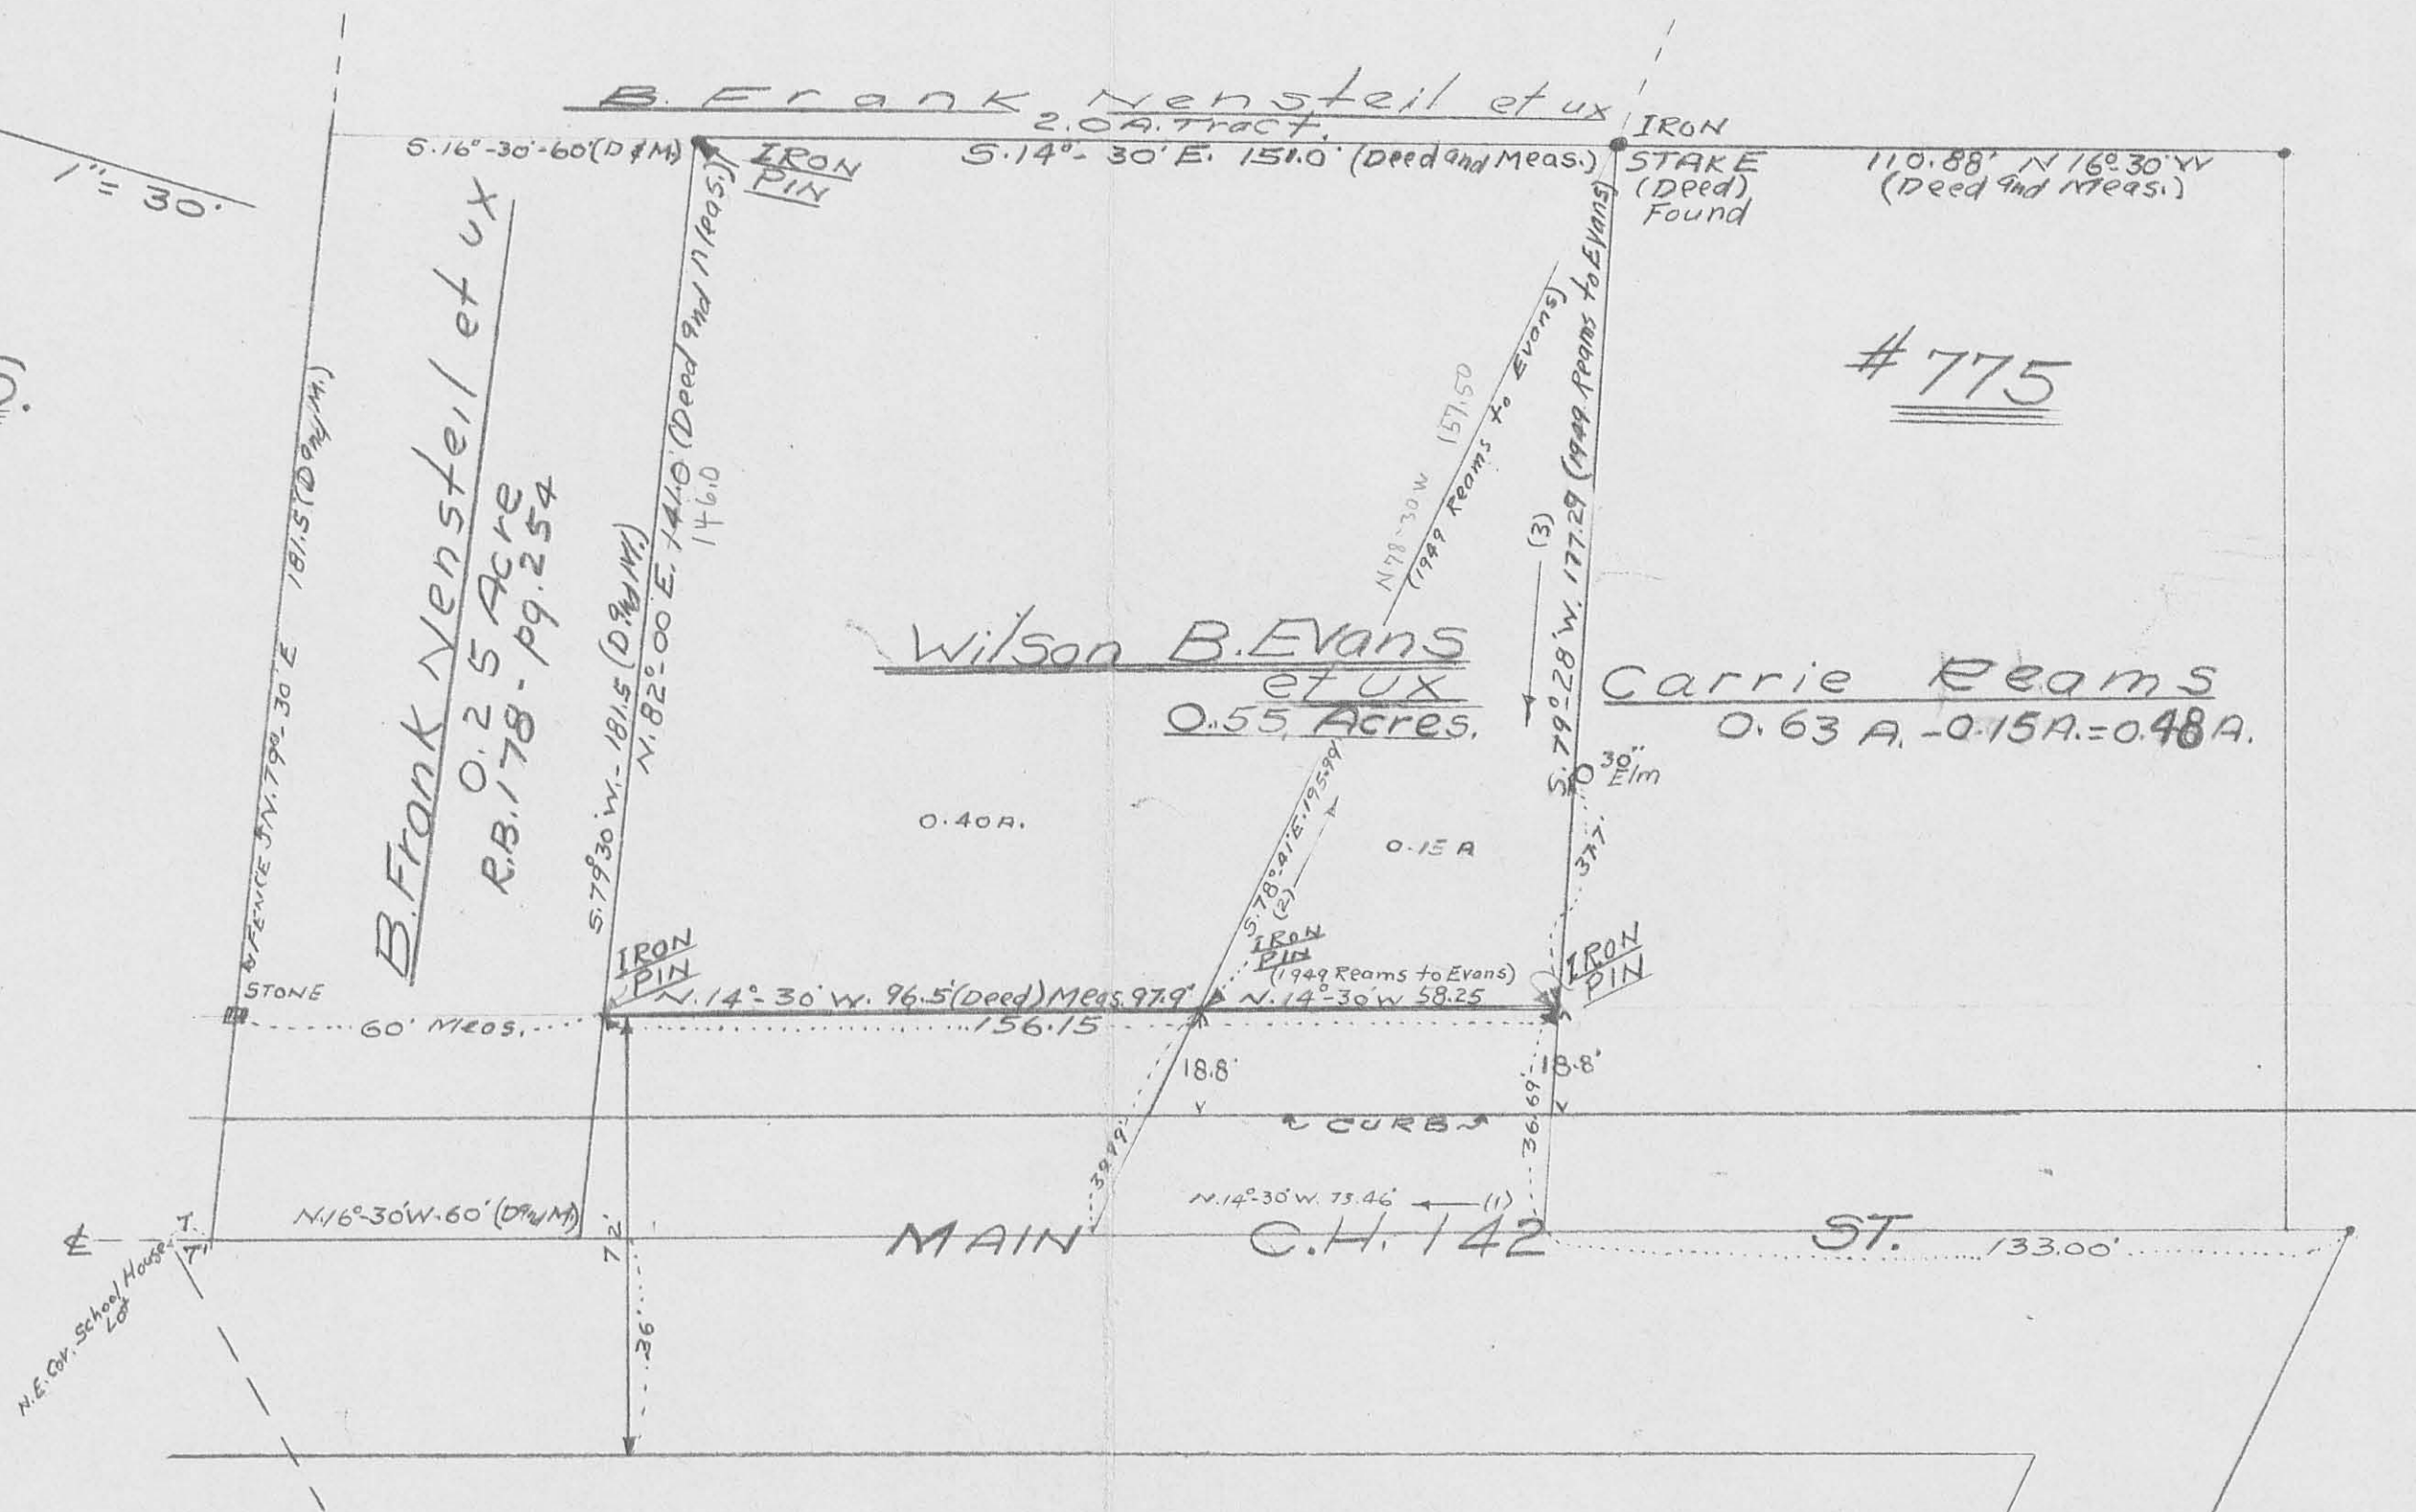 1"= 30'
B. Frank Nensteil et ux
2.0 A. Tract.
S.16°-30'-60'(D & M.)
IRON
PIN
S.14°- 30' E. 151.0' (Deed and Meas.)
IRON
STAKE
(Deed)
Found
110.88' N 16°-30' W
(Deed and Meas.)
# 775
181.5 (D and M.)
FENCE N.79°-30' E
B. Frank Nensteil et ux
0.25 Acre
R.B. 178 - pg. 254
S.79°30' W. - 181.5 (D. and M.)
N. 82°-00 E. 141.0' (Deed and Meas.)
146.0
N78-30W 157.50
(1949 Reams to Evans)
(3)
S. 79°-28' W. 177.29 (1949 Reams to Evans)
Wilson B. Evans
et ux
0.55 Acres.
Carrie Reams
0.63 A. - 0.15 A. = 0.48 A.
30"
Elm
37.7'
0.40 A.
0.15 A
S.78°-41' E. 195.99'
(2)
IRON
PIN
(1949 Reams to Evans)
IRON
PIN
IRON
PIN
STONE
N. 14°- 30' W. 96.5' (Deed) Meas. 97.9'
N. 14°-30' W 58.25
60' Meas.
156.15
18.8'
18.8'
36.69'
CURB
N.16°-30' W. 60' (D and M.)
N.14°-30' W. 73.46'
(1)
72'
MAIN C.H. 142 ST.
133.00'
36'
N.E. Cor. School House
Lot